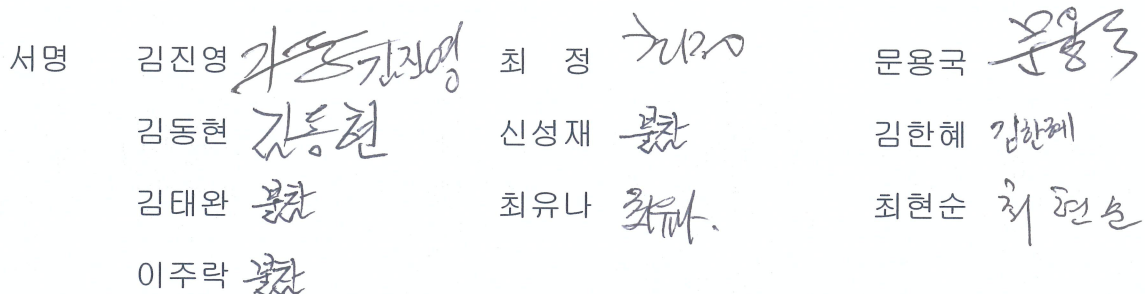 서명 김진영 김진영 최 정 최정 문용국 문용국
김동현 김동현 신성재 불참 김한혜 김한혜
김태완 불참 최유나 최유나. 최현순 최현순
이주락 불참